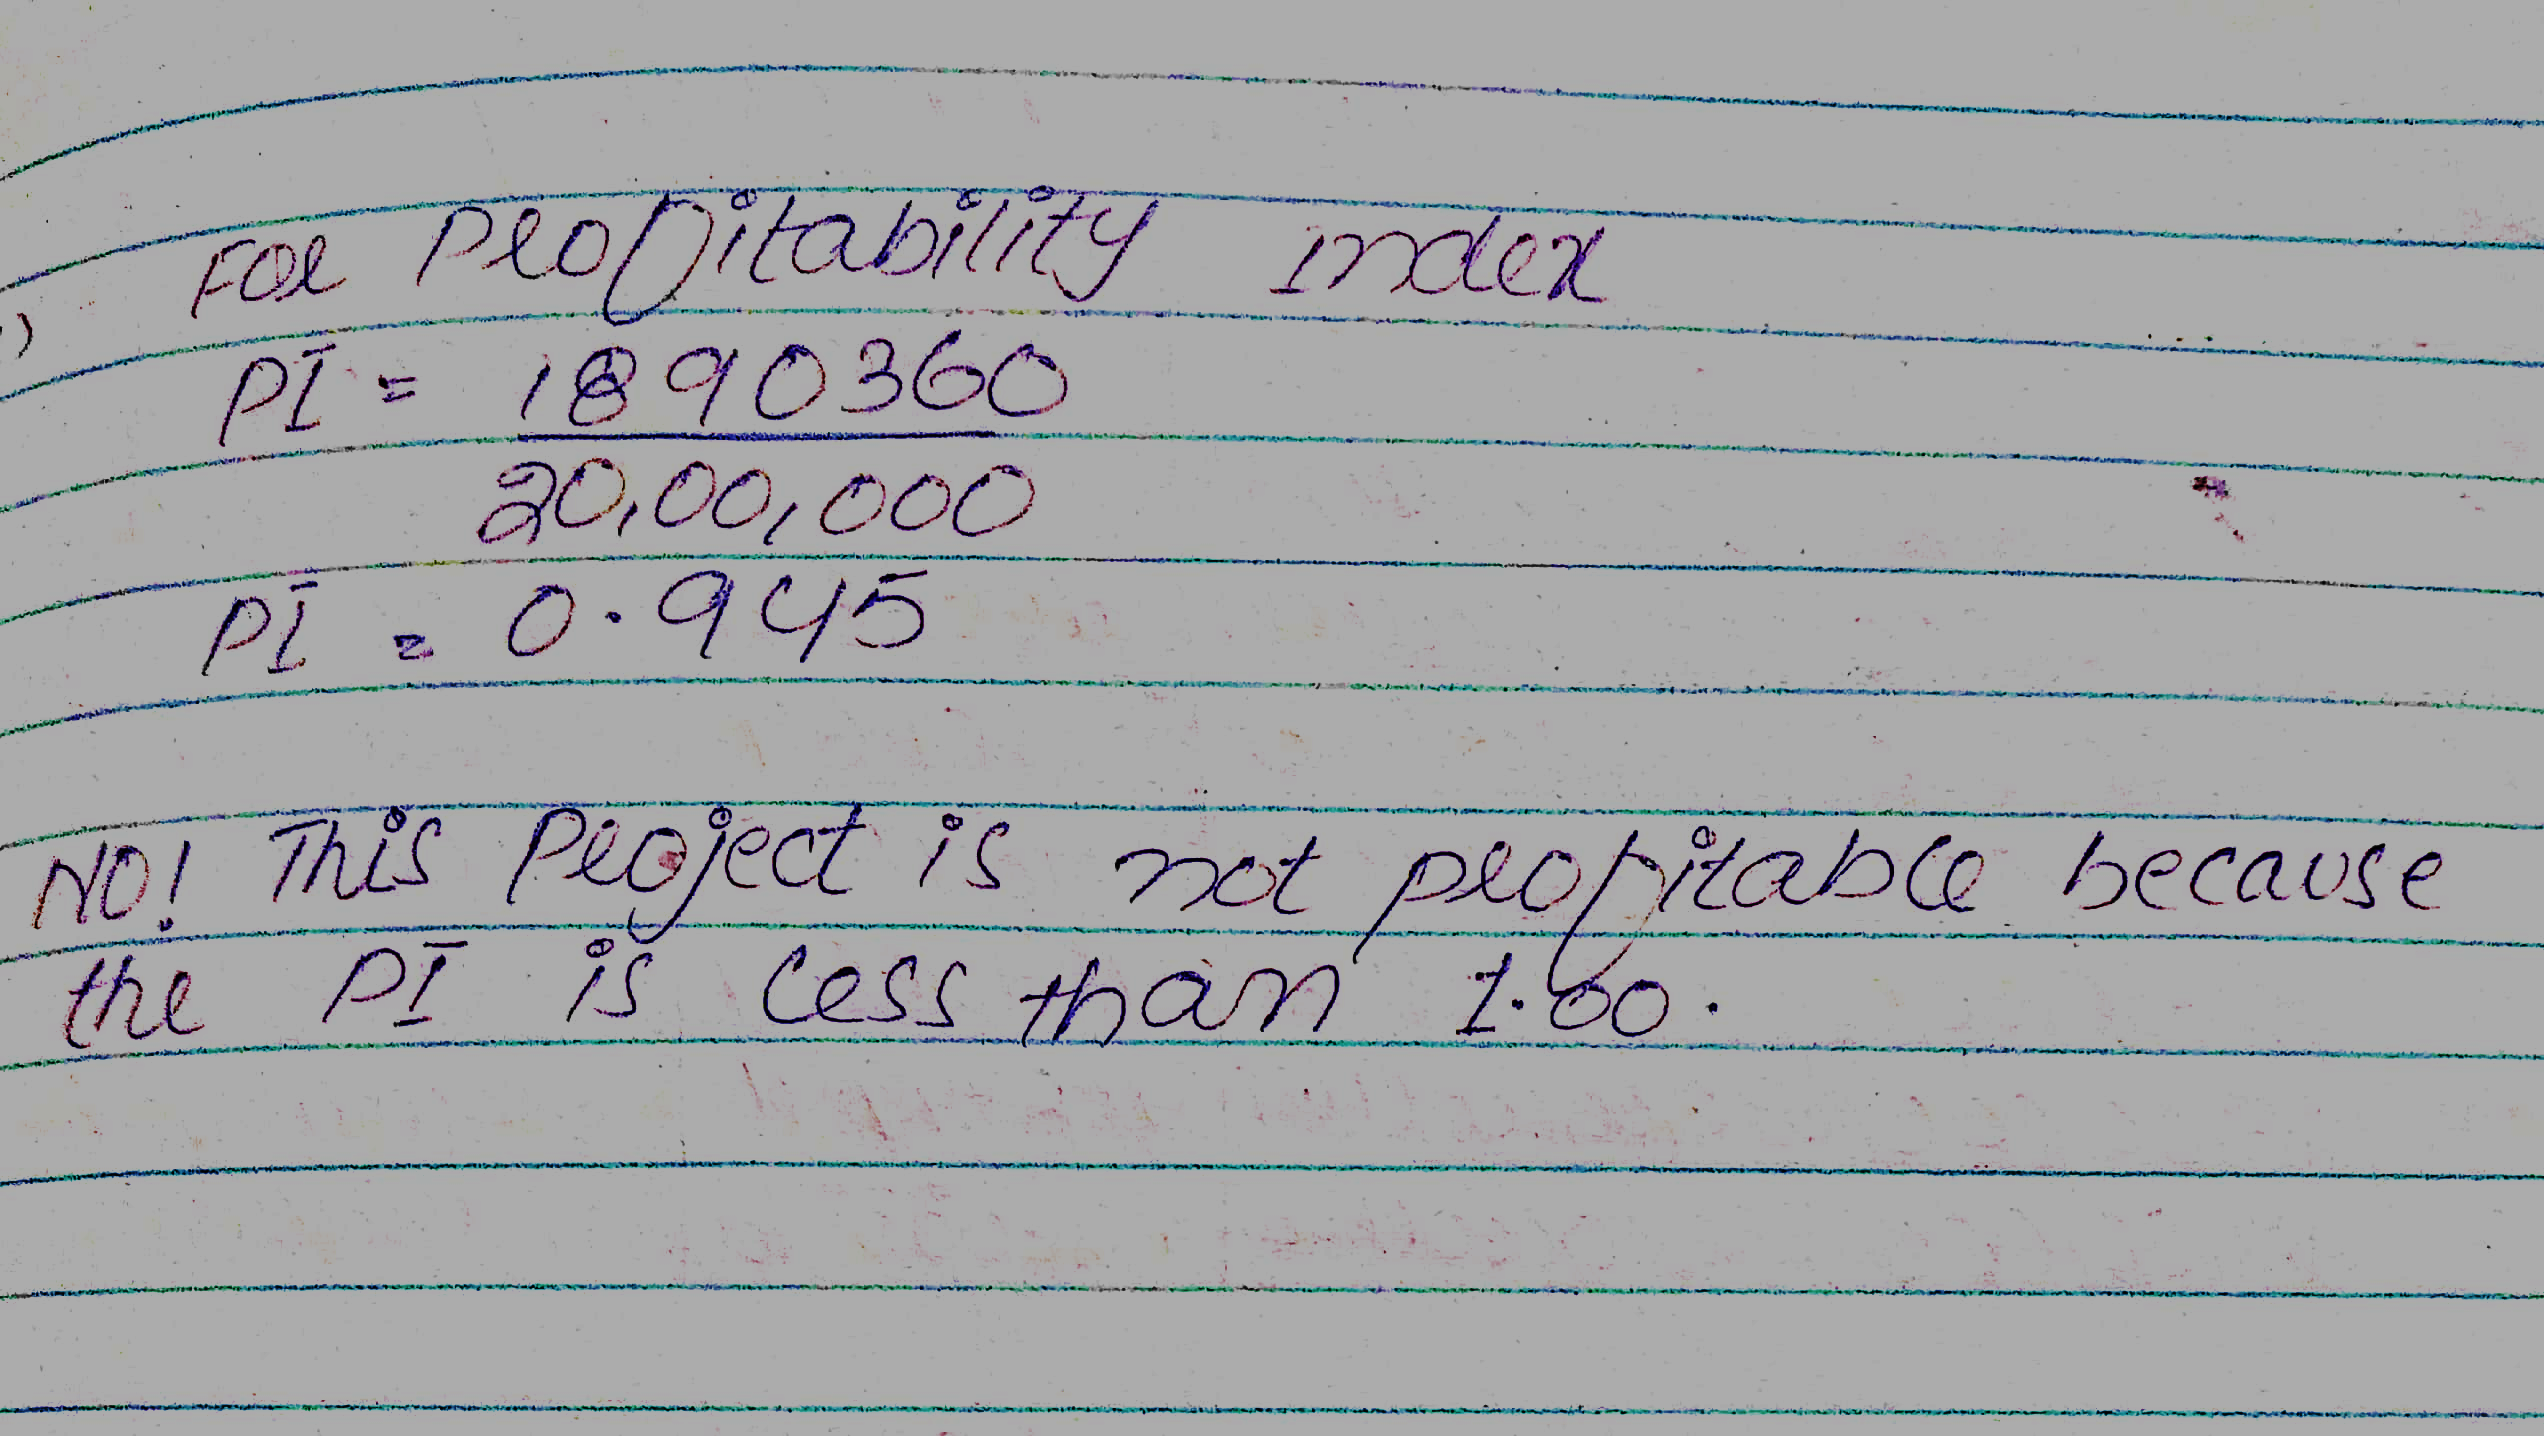 For Profitability index
)
PI = 1890360
20,00,000
PI = 0.945
NO! This Project is not profitable because
the PI is less than 1.00.